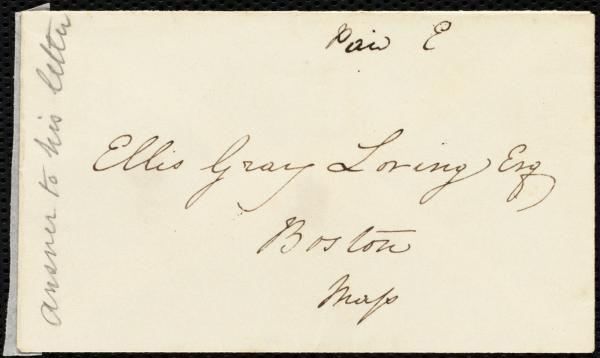 Paid E
Ellis Gray Loring Esq
Boston
Mass
Answer to his letter